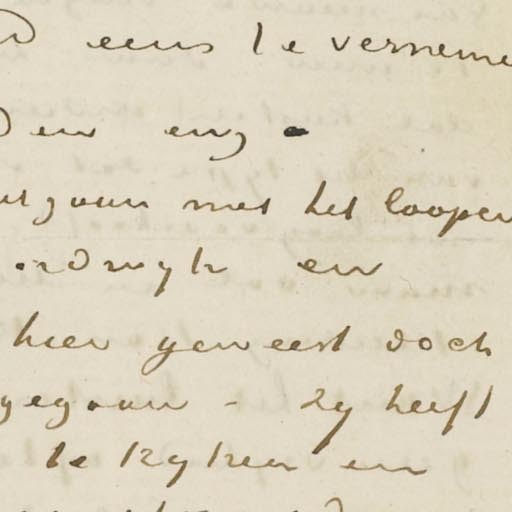 eens te verneme
en enz.
gaan met het loopen
ordwyk en
hier geweest doch
gegaan - zy heeft
te kyken en